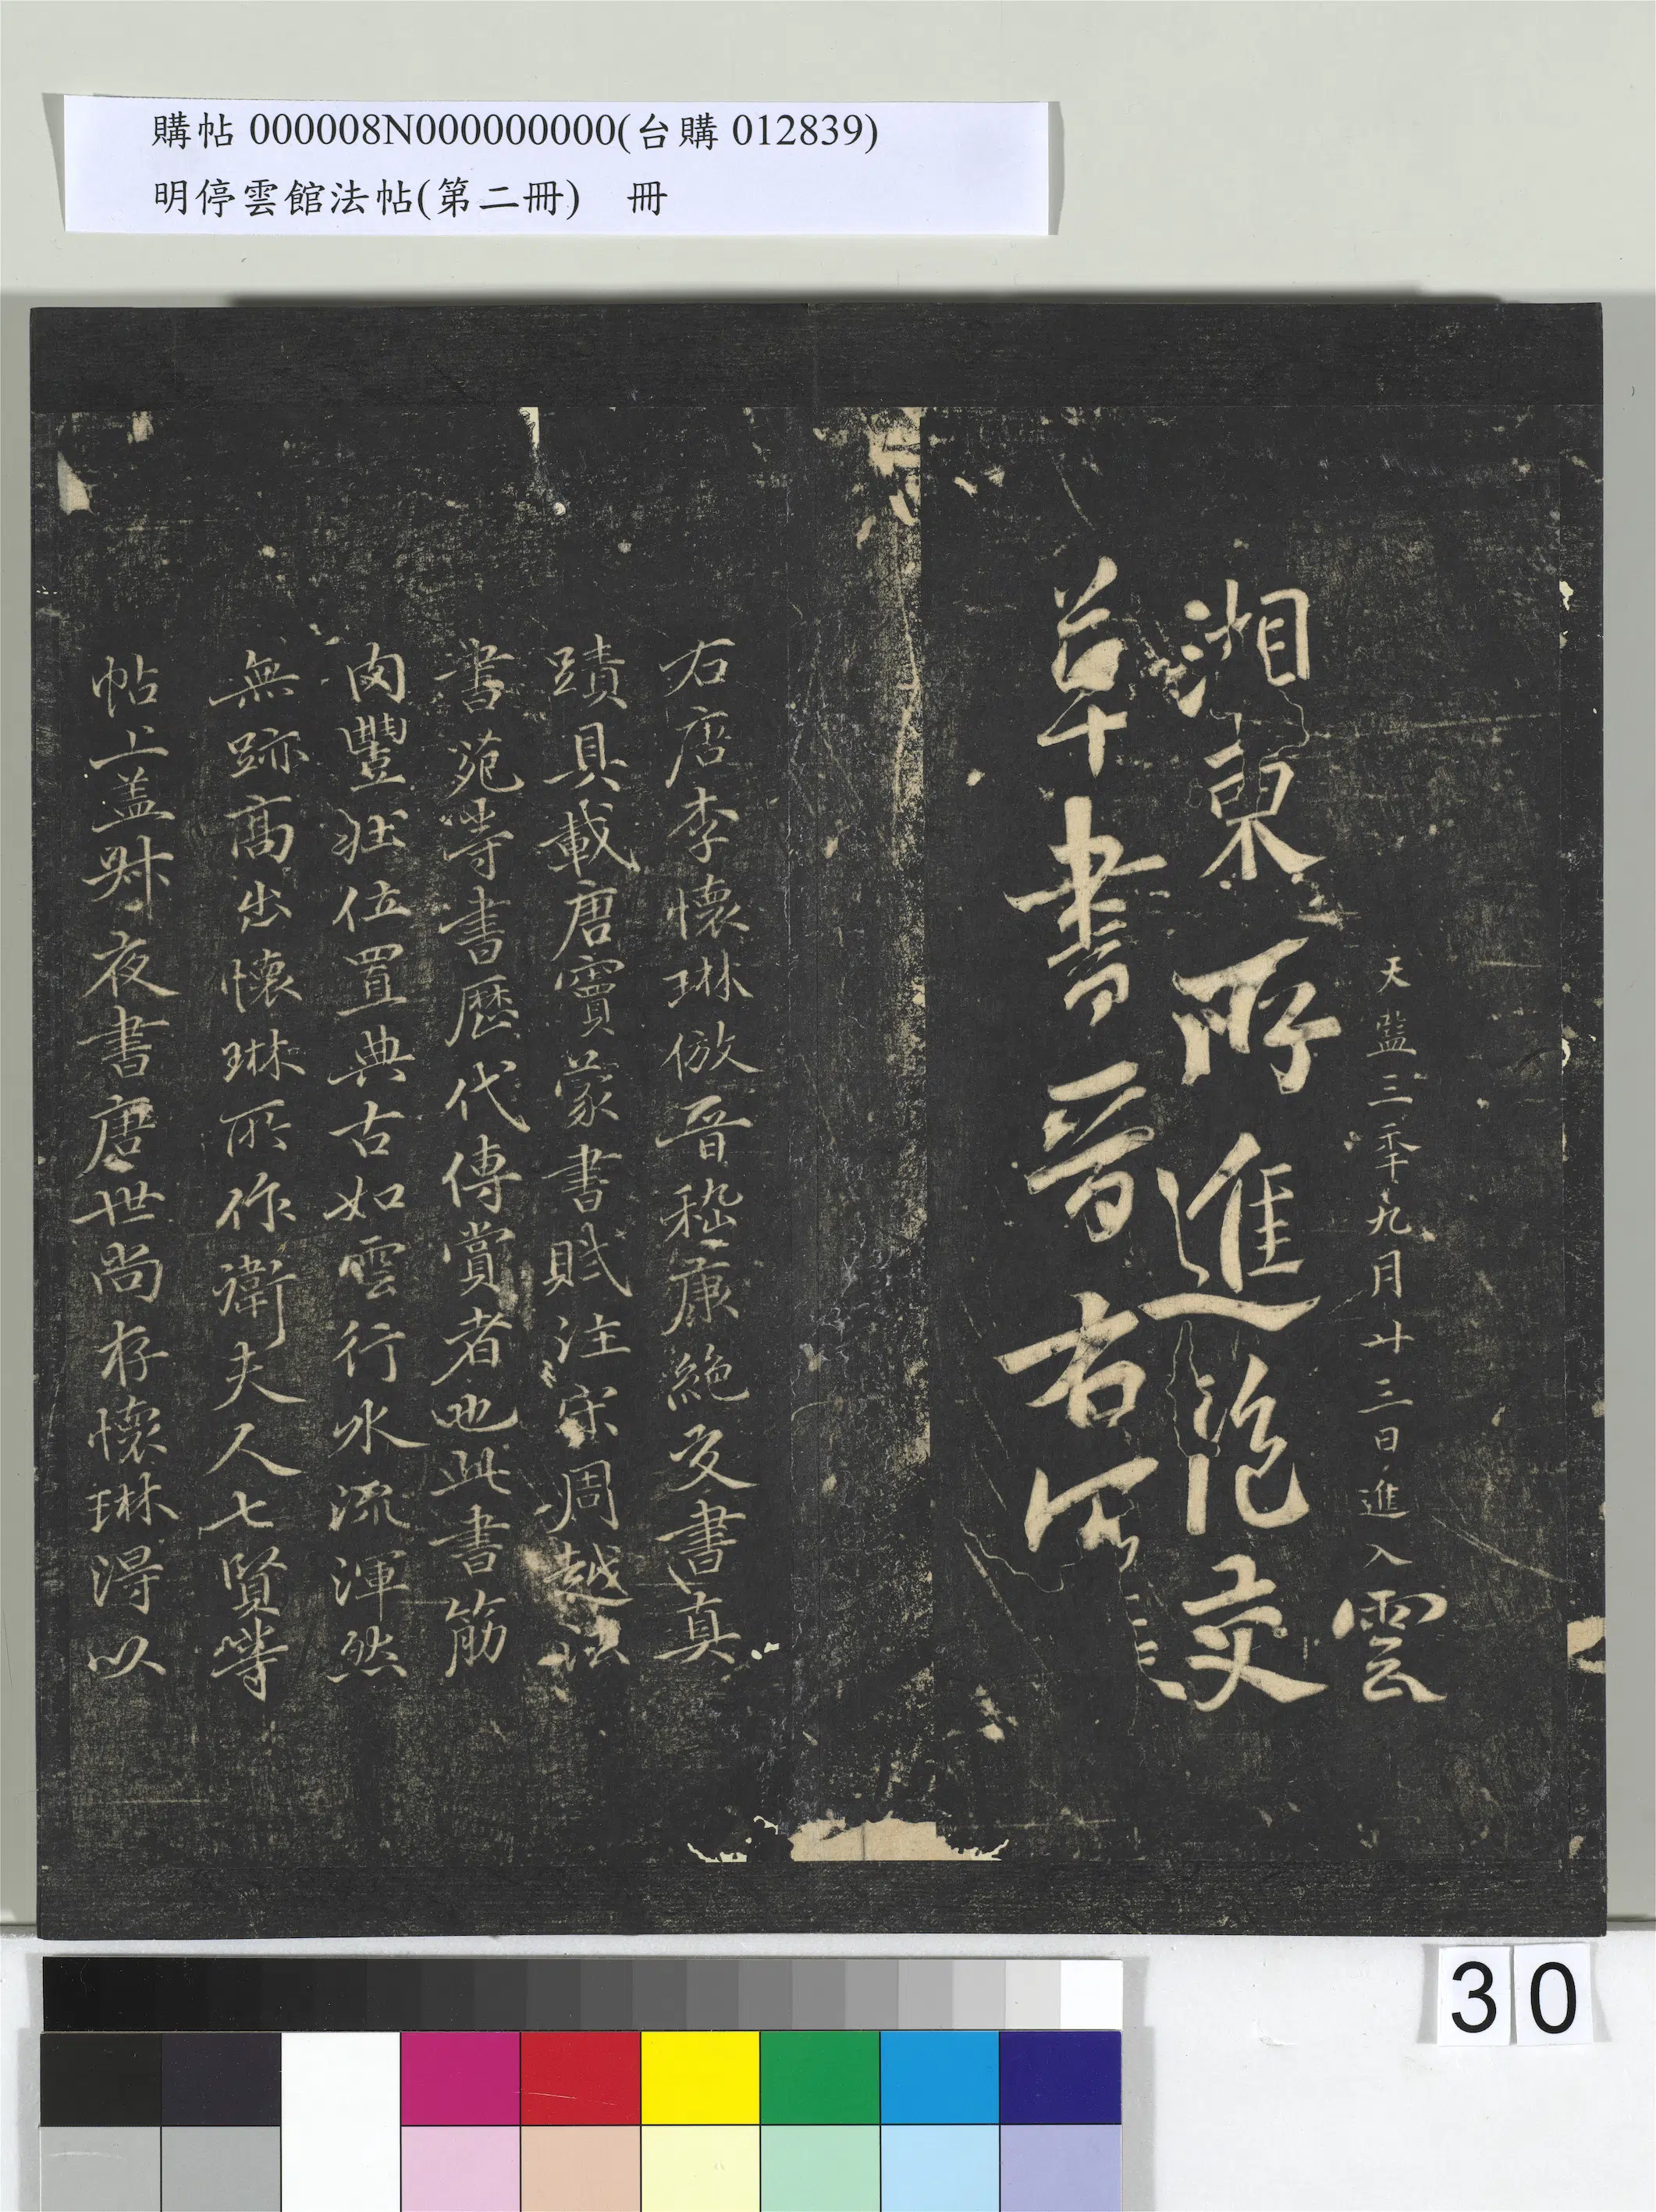 購帖 000008N000000000(台購 012839)
明停雲館法帖(第二冊) 冊
天監三年九月廿三日進入 雲
湘東所進范交
草書晉右
右唐李懷琳倣晉嵇康絶交書真
蹟具載唐竇蒙書賦注宋周越法
書苑等書歷代傳賞者也此書筋
肉豐壯位置典古如雲行水流渾然
無跡髙出懷琳所作衛夫人七賢等
帖上盖叔夜書唐世尚存懷琳得以
30